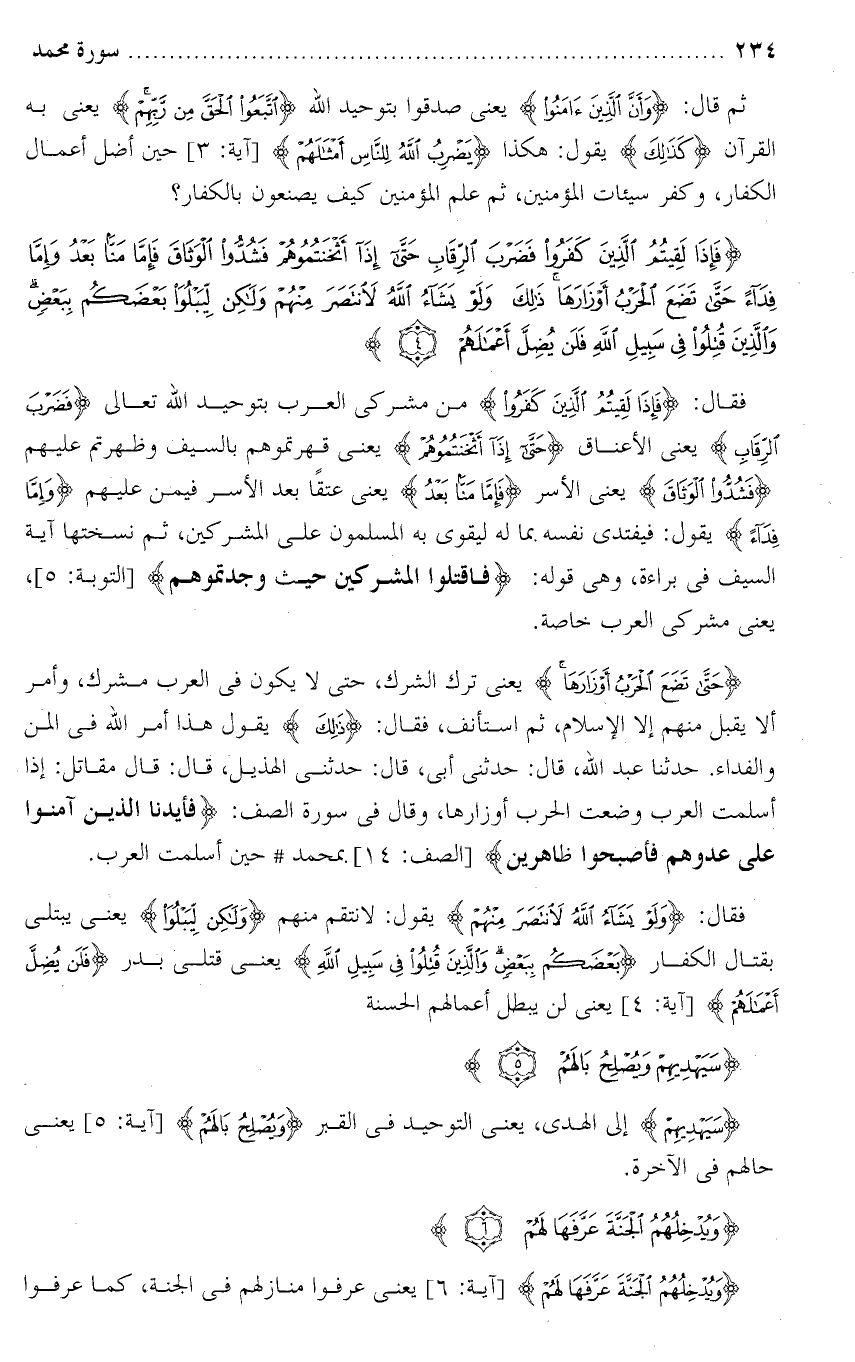 ٢٣٤ ........................................................................ سورة محمد
ثم قال: ﴿وَأَنَّ ٱلَّذِينَ ءَامَنُوا۟﴾ يعنى صدقوا بتوحيد الله ﴿ٱتَّبَعُوا۟ ٱلْحَقَّ مِن رَّبِّهِمْ ۚ﴾ يعنى به
القرآن ﴿كَذَٰلِكَ﴾ يقول: هكذا ﴿يَضْرِبُ ٱللَّهُ لِلنَّاسِ أَمْثَٰلَهُمْ﴾ [آية: ٣] حين أضل أعمال
الكفار، وكفر سيئات المؤمنين، ثم علم المؤمنين كيف يصنعون بالكفار؟
﴿فَإِذَا لَقِيتُمُ ٱلَّذِينَ كَفَرُوا۟ فَضَرْبَ ٱلرِّقَابِ حَتَّىٰٓ إِذَآ أَثْخَنتُمُوهُمْ فَشُدُّوا۟ ٱلْوَثَاقَ فَإِمَّا مَنًّۢا بَعْدُ وَإِمَّا
فِدَآءً حَتَّىٰ تَضَعَ ٱلْحَرْبُ أَوْزَارَهَا ۚ ذَٰلِكَ وَلَوْ يَشَآءُ ٱللَّهُ لَٱنتَصَرَ مِنْهُمْ وَلَٰكِن لِّيَبْلُوَا۟ بَعْضَكُم بِبَعْضٍ ۗ
وَٱلَّذِينَ قُتِلُوا۟ فِى سَبِيلِ ٱللَّهِ فَلَن يُضِلَّ أَعْمَٰلَهُمْ ٤﴾
فقال: ﴿فَإِذَا لَقِيتُمُ ٱلَّذِينَ كَفَرُوا۟﴾ من مشركى العرب بتوحيد الله تعالى ﴿فَضَرْبَ
ٱلرِّقَابِ﴾ يعنى الأعناق ﴿حَتَّىٰٓ إِذَآ أَثْخَنتُمُوهُمْ﴾ يعنى قهرتموهم بالسيف وظهرتم عليهم
﴿فَشُدُّوا۟ ٱلْوَثَاقَ﴾ يعنى الأسر ﴿فَإِمَّا مَنًّۢا بَعْدُ﴾ يعنى عتقًا بعد الأسر فيمن عليهم ﴿وَإِمَّا
فِدَآءً﴾ يقول: فيفتدى نفسه بما له ليقوى به المسلمون على المشركين، ثم نسختها آية
السيف فى براءة، وهى قوله: ﴿فاقتلوا المشركين حيث وجدتموهم﴾ [التوبة: ٥]،
يعنى مشركى العرب خاصة.
﴿حَتَّىٰ تَضَعَ ٱلْحَرْبُ أَوْزَارَهَا ۚ﴾ يعنى ترك الشرك، حتى لا يكون فى العرب مشرك، وأمر
ألا يقبل منهم إلا الإسلام، ثم استأنف، فقال: ﴿ذَٰلِكَ﴾ يقول هذا أمر الله فى المن
والفداء. حدثنا عبد الله، قال: حدثنى أبى، قال: حدثنى الهذيل، قال: قال مقاتل: إذا
أسلمت العرب وضعت الحرب أوزارها، وقال فى سورة الصف: ﴿فأيدنا الذين آمنوا
على عدوهم فأصبحوا ظاهرين﴾ [الصف: ١٤] بمحمد # حين أسلمت العرب.
فقال: ﴿وَلَوْ يَشَآءُ ٱللَّهُ لَٱنتَصَرَ مِنْهُمْ﴾ يقول: لانتقم منهم ﴿وَلَٰكِن لِّيَبْلُوَا۟﴾ يعنى يبتلى
بقتال الكفار ﴿بَعْضَكُم بِبَعْضٍ ۗ وَٱلَّذِينَ قُتِلُوا۟ فِى سَبِيلِ ٱللَّهِ﴾ يعنى قتلى بدر ﴿فَلَن يُضِلَّ
أَعْمَٰلَهُمْ﴾ [آية: ٤] يعنى لن يبطل أعمالهم الحسنة
﴿سَيَهْدِيهِمْ وَيُصْلِحُ بَالَهُمْ ٥﴾
﴿سَيَهْدِيهِمْ﴾ إلى الهدى، يعنى التوحيد فى القبر ﴿وَيُصْلِحُ بَالَهُمْ﴾ [آية: ٥] يعنى
حالهم فى الآخرة.
﴿وَيُدْخِلُهُمُ ٱلْجَنَّةَ عَرَّفَهَا لَهُمْ ٦﴾
﴿وَيُدْخِلُهُمُ ٱلْجَنَّةَ عَرَّفَهَا لَهُمْ﴾ [آية: ٦] يعنى عرفوا منازلهم فى الجنة، كما عرفوا